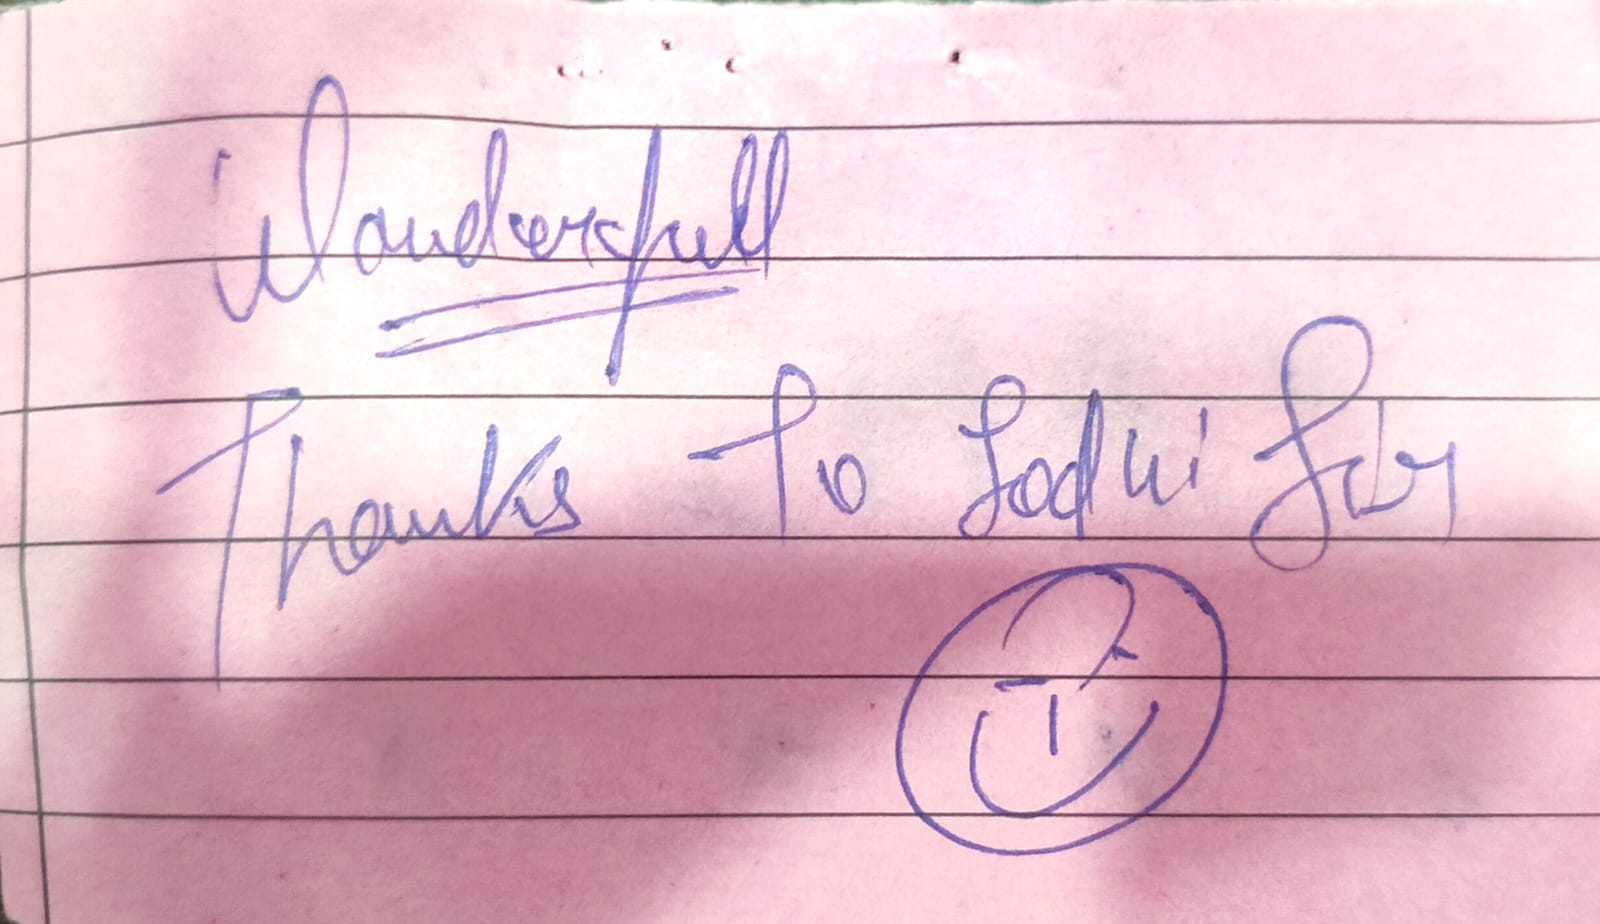 Wonderfull
Thanks To Lodhi Sir